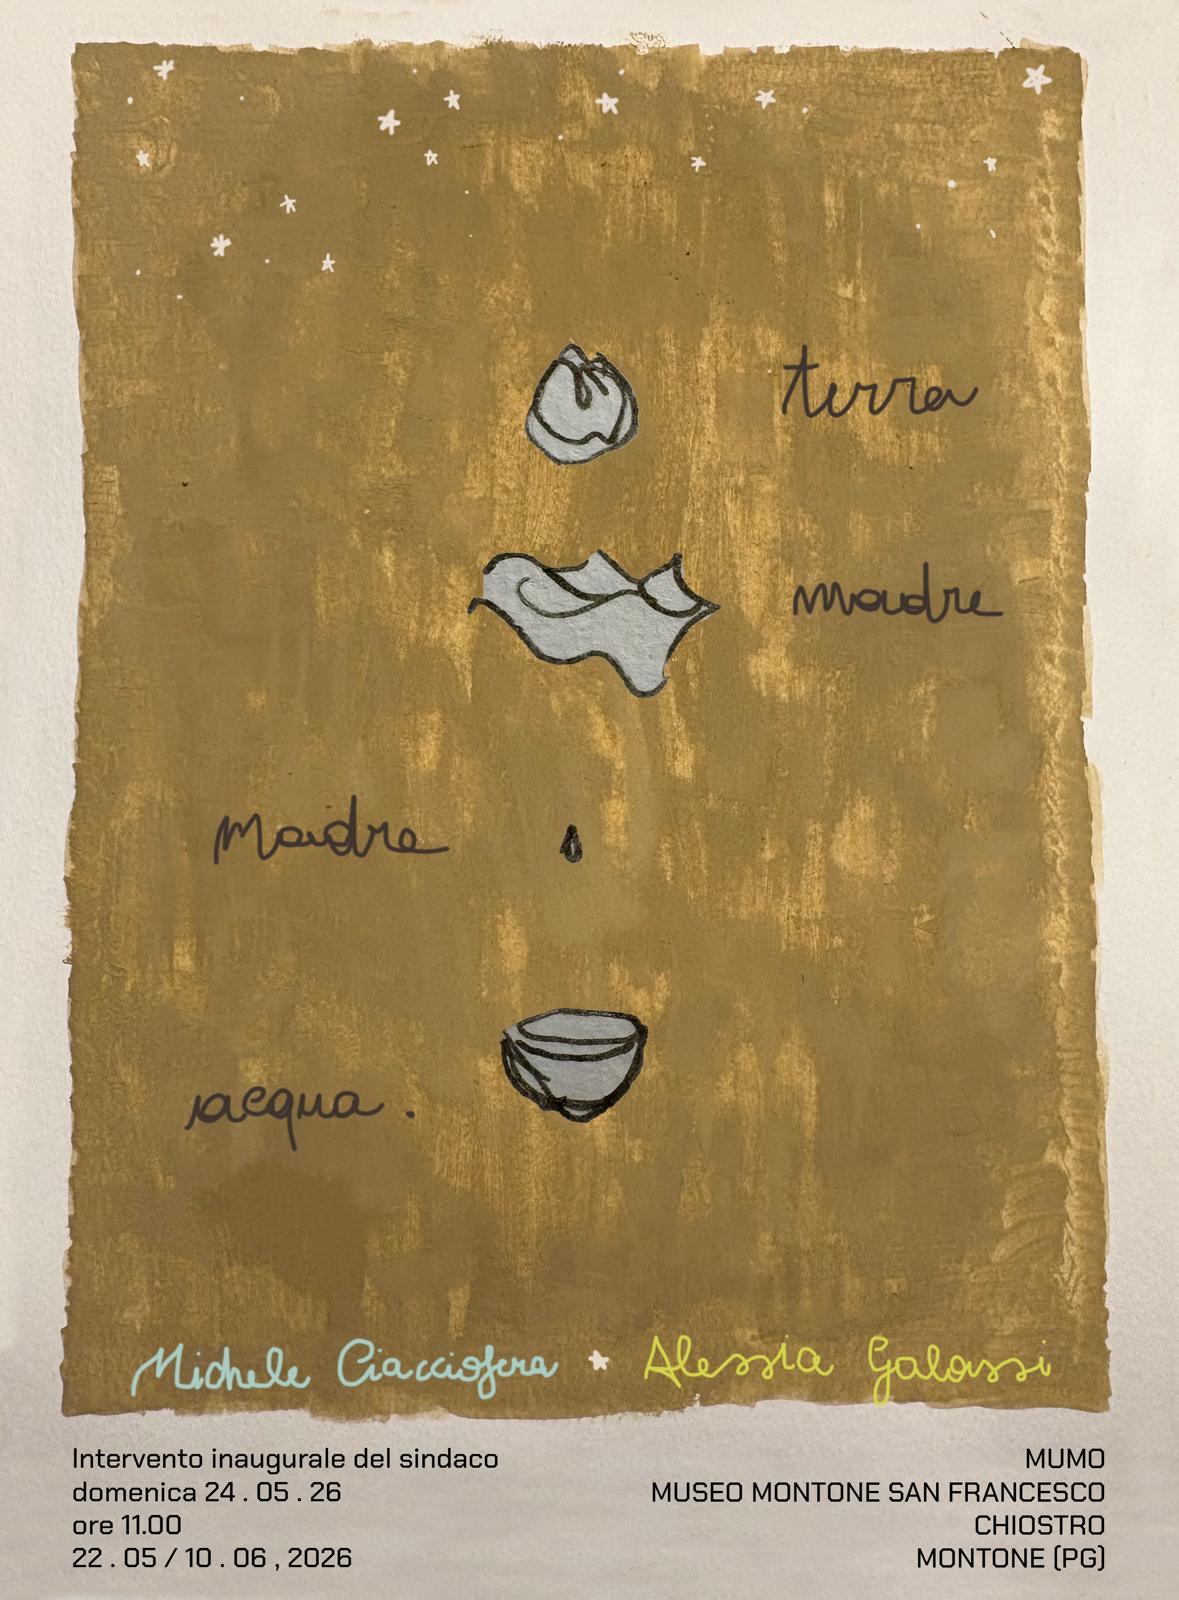 terra
madre
Madre
acqua .
Michele Ciacciofera * Alessia Galassi
Intervento inaugurale del sindaco
domenica 24 . 05 . 26
ore 11.00
22 . 05 / 10 . 06 , 2026
MUMO
MUSEO MONTONE SAN FRANCESCO
CHIOSTRO
MONTONE (PG)